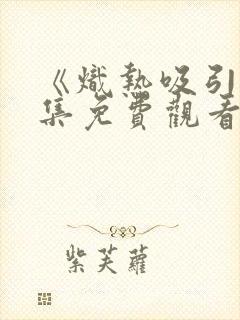 《熾熱吸引
集免費觀看
紫芙蘿